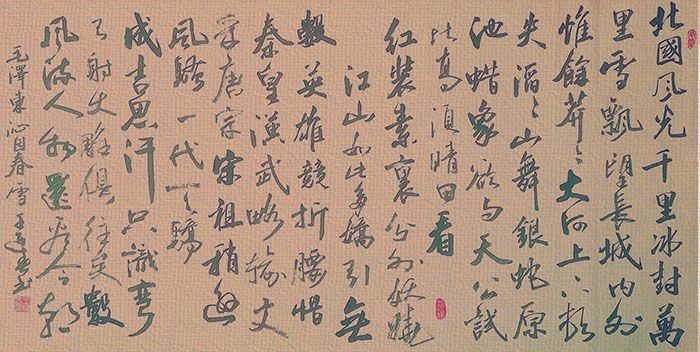 北國風光千里冰封萬
里雪飄望長城内外
惟餘莽〻大河上下頓
失滔〻山舞銀蛇原
池蜡象欲与天公試
比高須晴日看
紅裝素裹分外妖嬈
江山如此多嬌引無
數英雄競折腰惜
秦皇漢武略輸文
采唐宗宋祖稍遜
風騷一代天驕
成吉思汗只識彎
弓射大雕俱往矣數
風流人物還看今朝
毛澤東沁園春雪